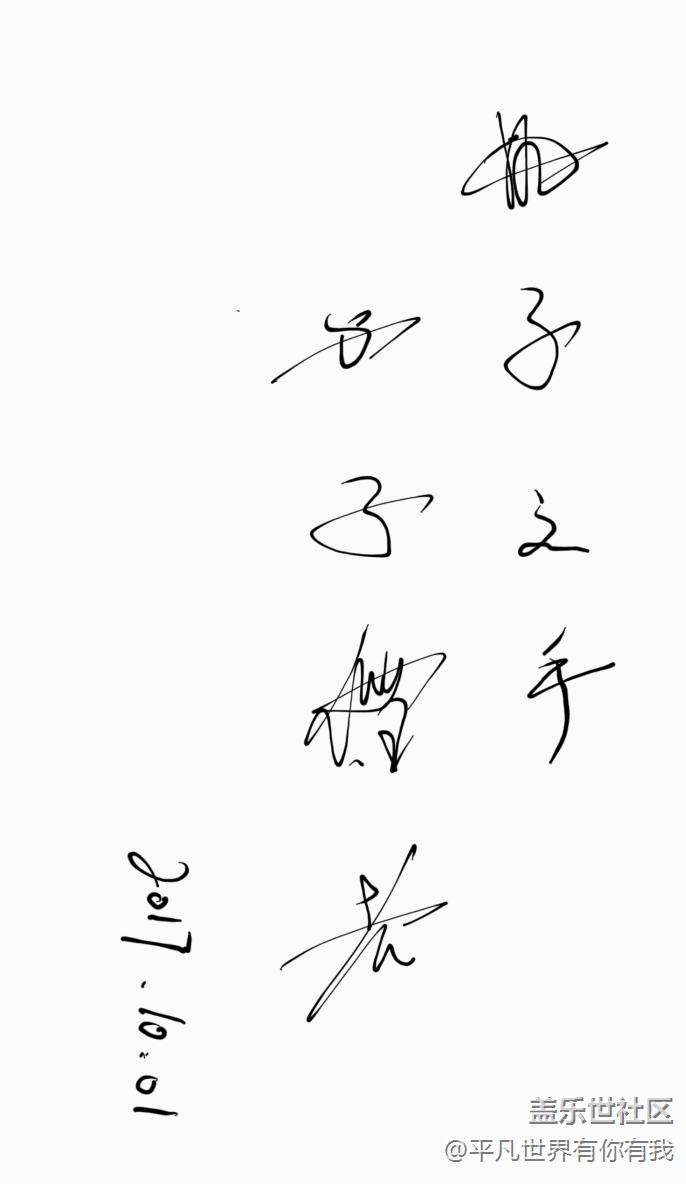 执子之手
与子偕老
2017.10.01
盖乐世社区
@平凡世界有你有我